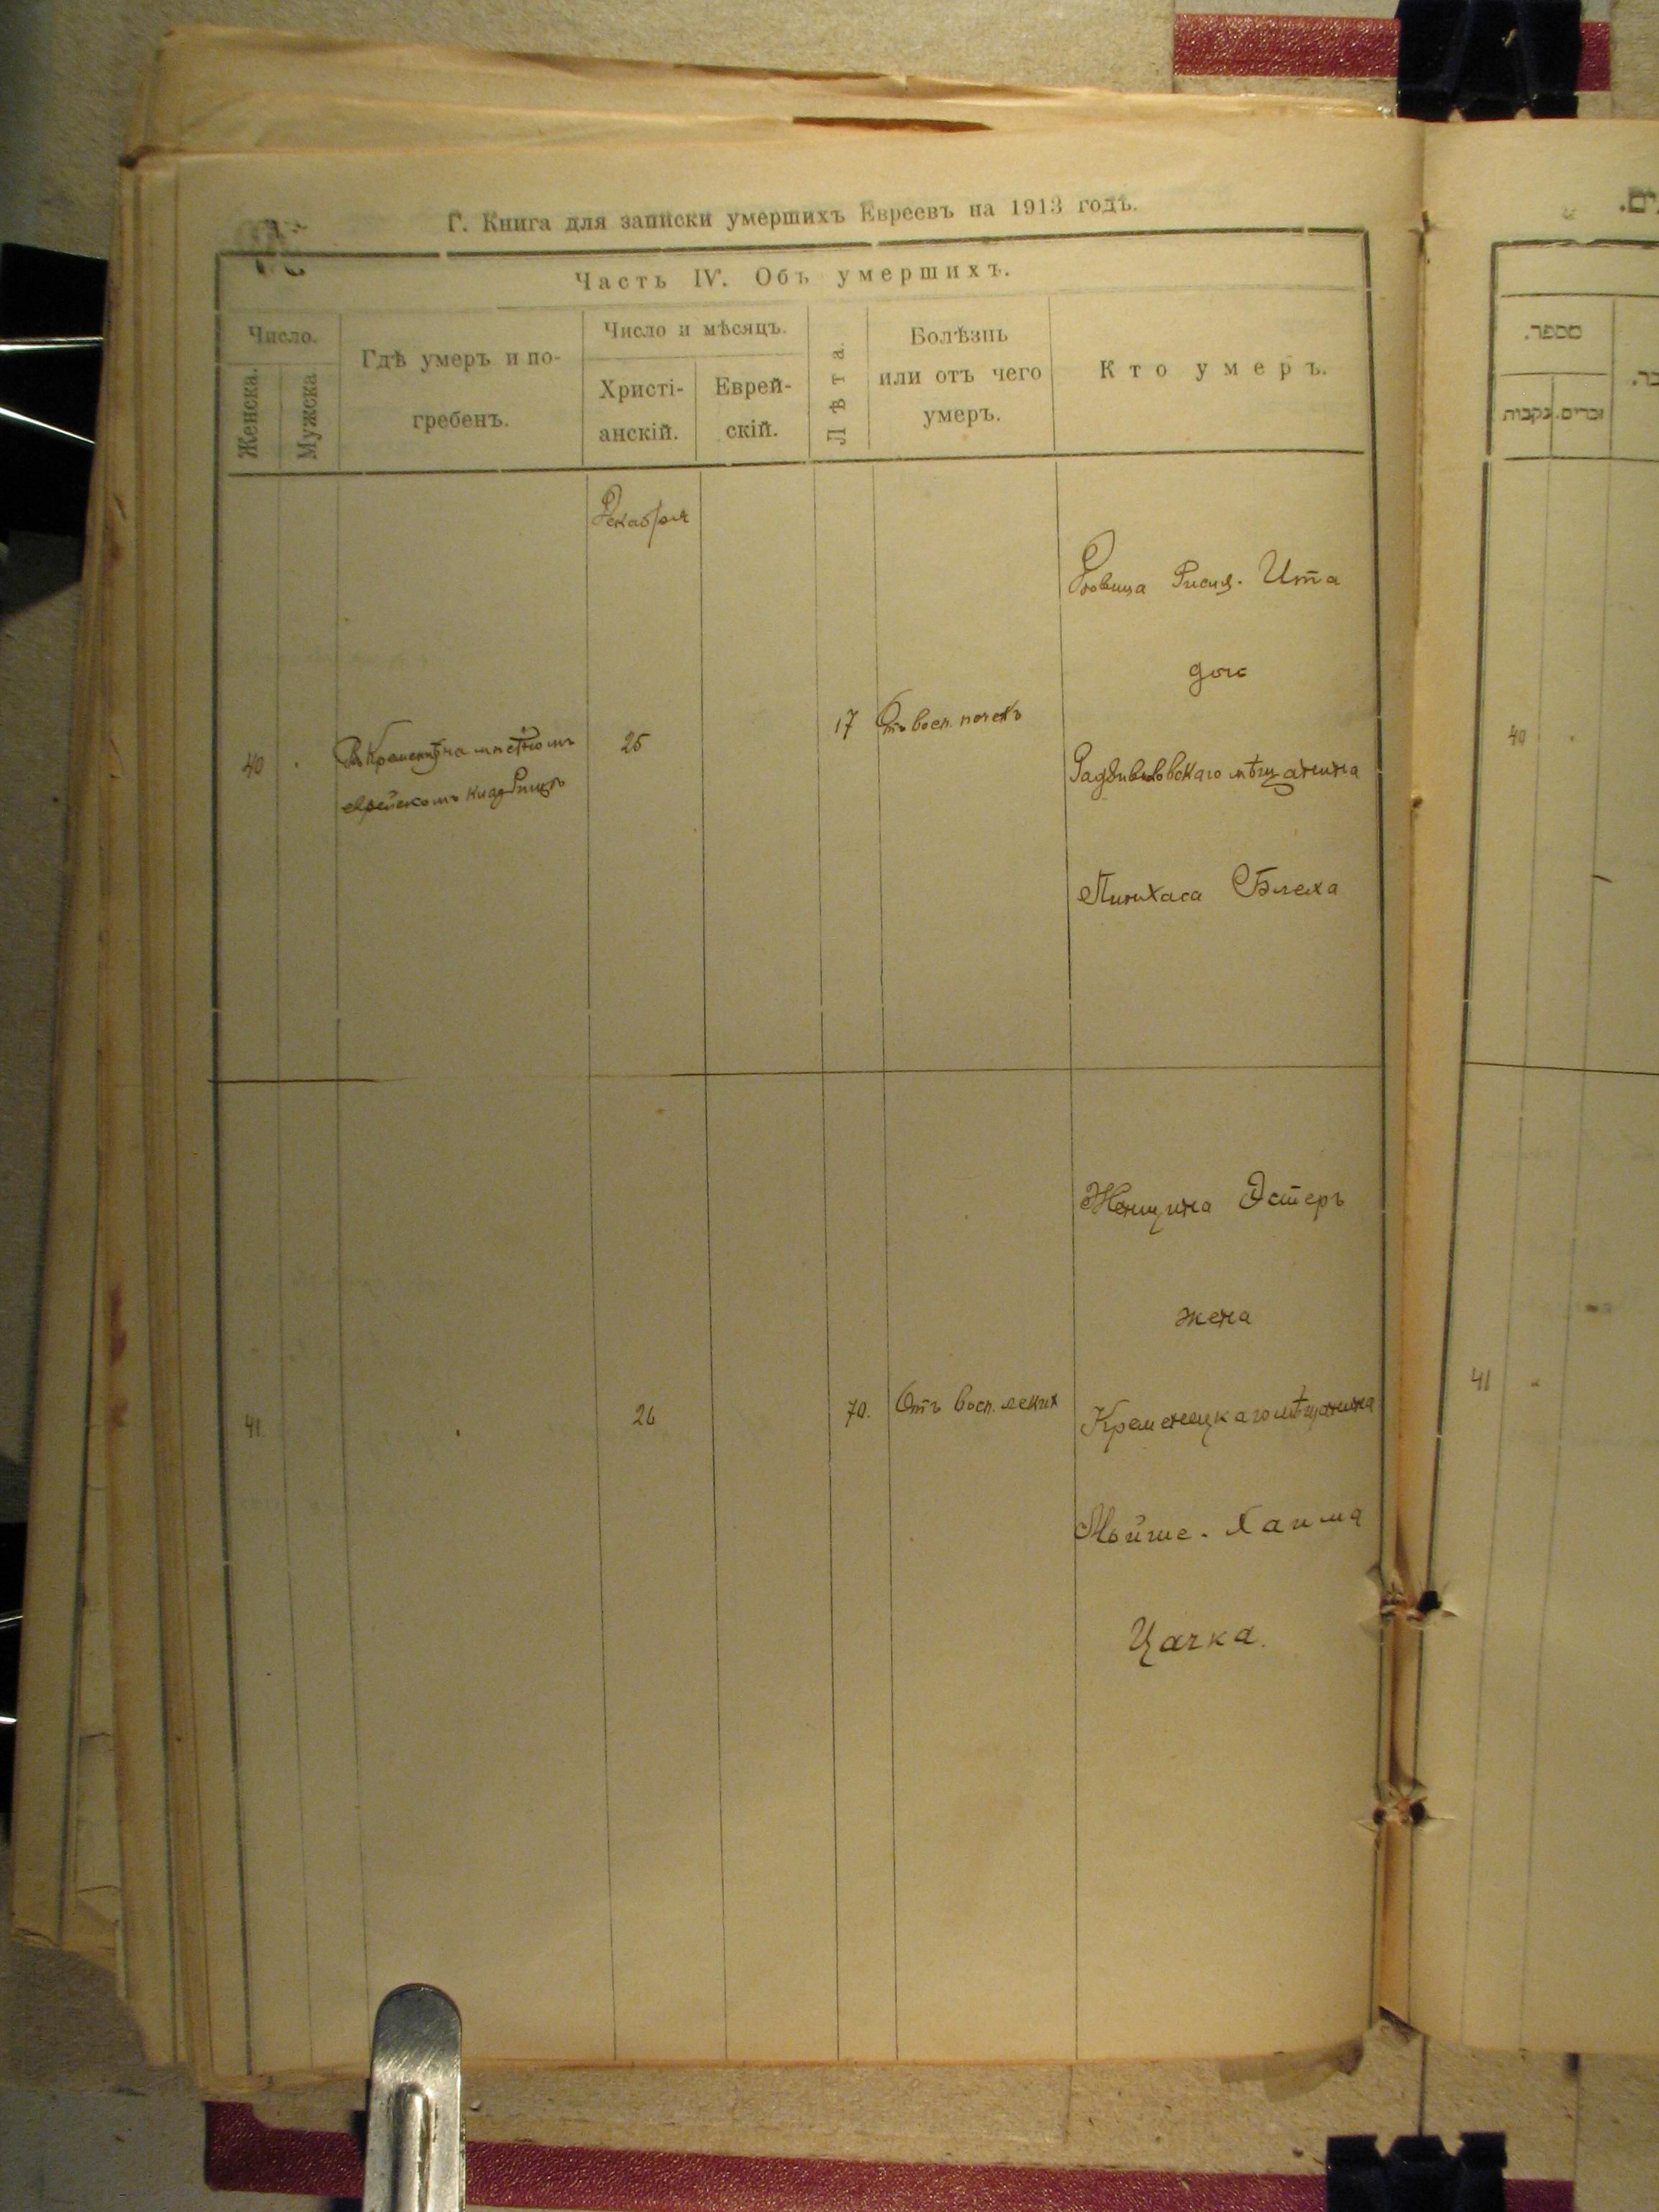 Г. Книга для записки умершихъ Евреевъ на 1913 годъ.
Часть IV. Объ умершихъ.
Число.
Женска.
Мужска.
Гдѣ умеръ и по-
гребенъ.
Число и мѣсяцъ.
Христі-
анскій.
Еврей-
скій.
Лѣта.
Болѣзнь
или отъ чего
умеръ.
Кто умеръ.
Декабря
40
Въ Кременцѣ на мѣстномъ
еврейскомъ кладбищѣ
25
17
Отъ восп. почекъ
Дѣвица Ита
дочь
Радзивиловскаго мѣщанина
Пинхаса Блеха
41.
26
70.
Отъ восп. легких
Женщина Эстеръ
жена
Кременецкаго мѣщанина
Мойше-Хаима
Цачка.
מספר.
נקבות
זכרים.
40
41